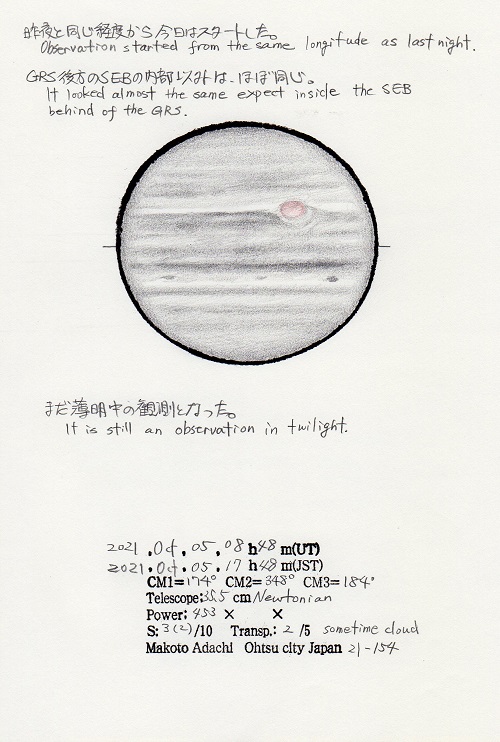 昨夜と同じ経度から今日はスタートした。
Observation started from the same longitude as last night.
GRS後方のSEBの内部以外は、ほぼ同じ。
It looked almost the same expect inside the SEB
behind of the GRS.
まだ薄明中の観測となった。
It is still an observation in twilight.
2021 . Oct . 05 . 08 h 48 m(UT)
2021 . Oct . 05 . 17 h 48 m(JST)
CM1= 174° CM2= 348° CM3= 184°
Telescope: 35.5 cm Newtonian
Power: 453 × ×
S: 3(2) /10 Transp.: 2 /5 sometime cloud
Makoto Adachi Ohtsu city Japan 21-154